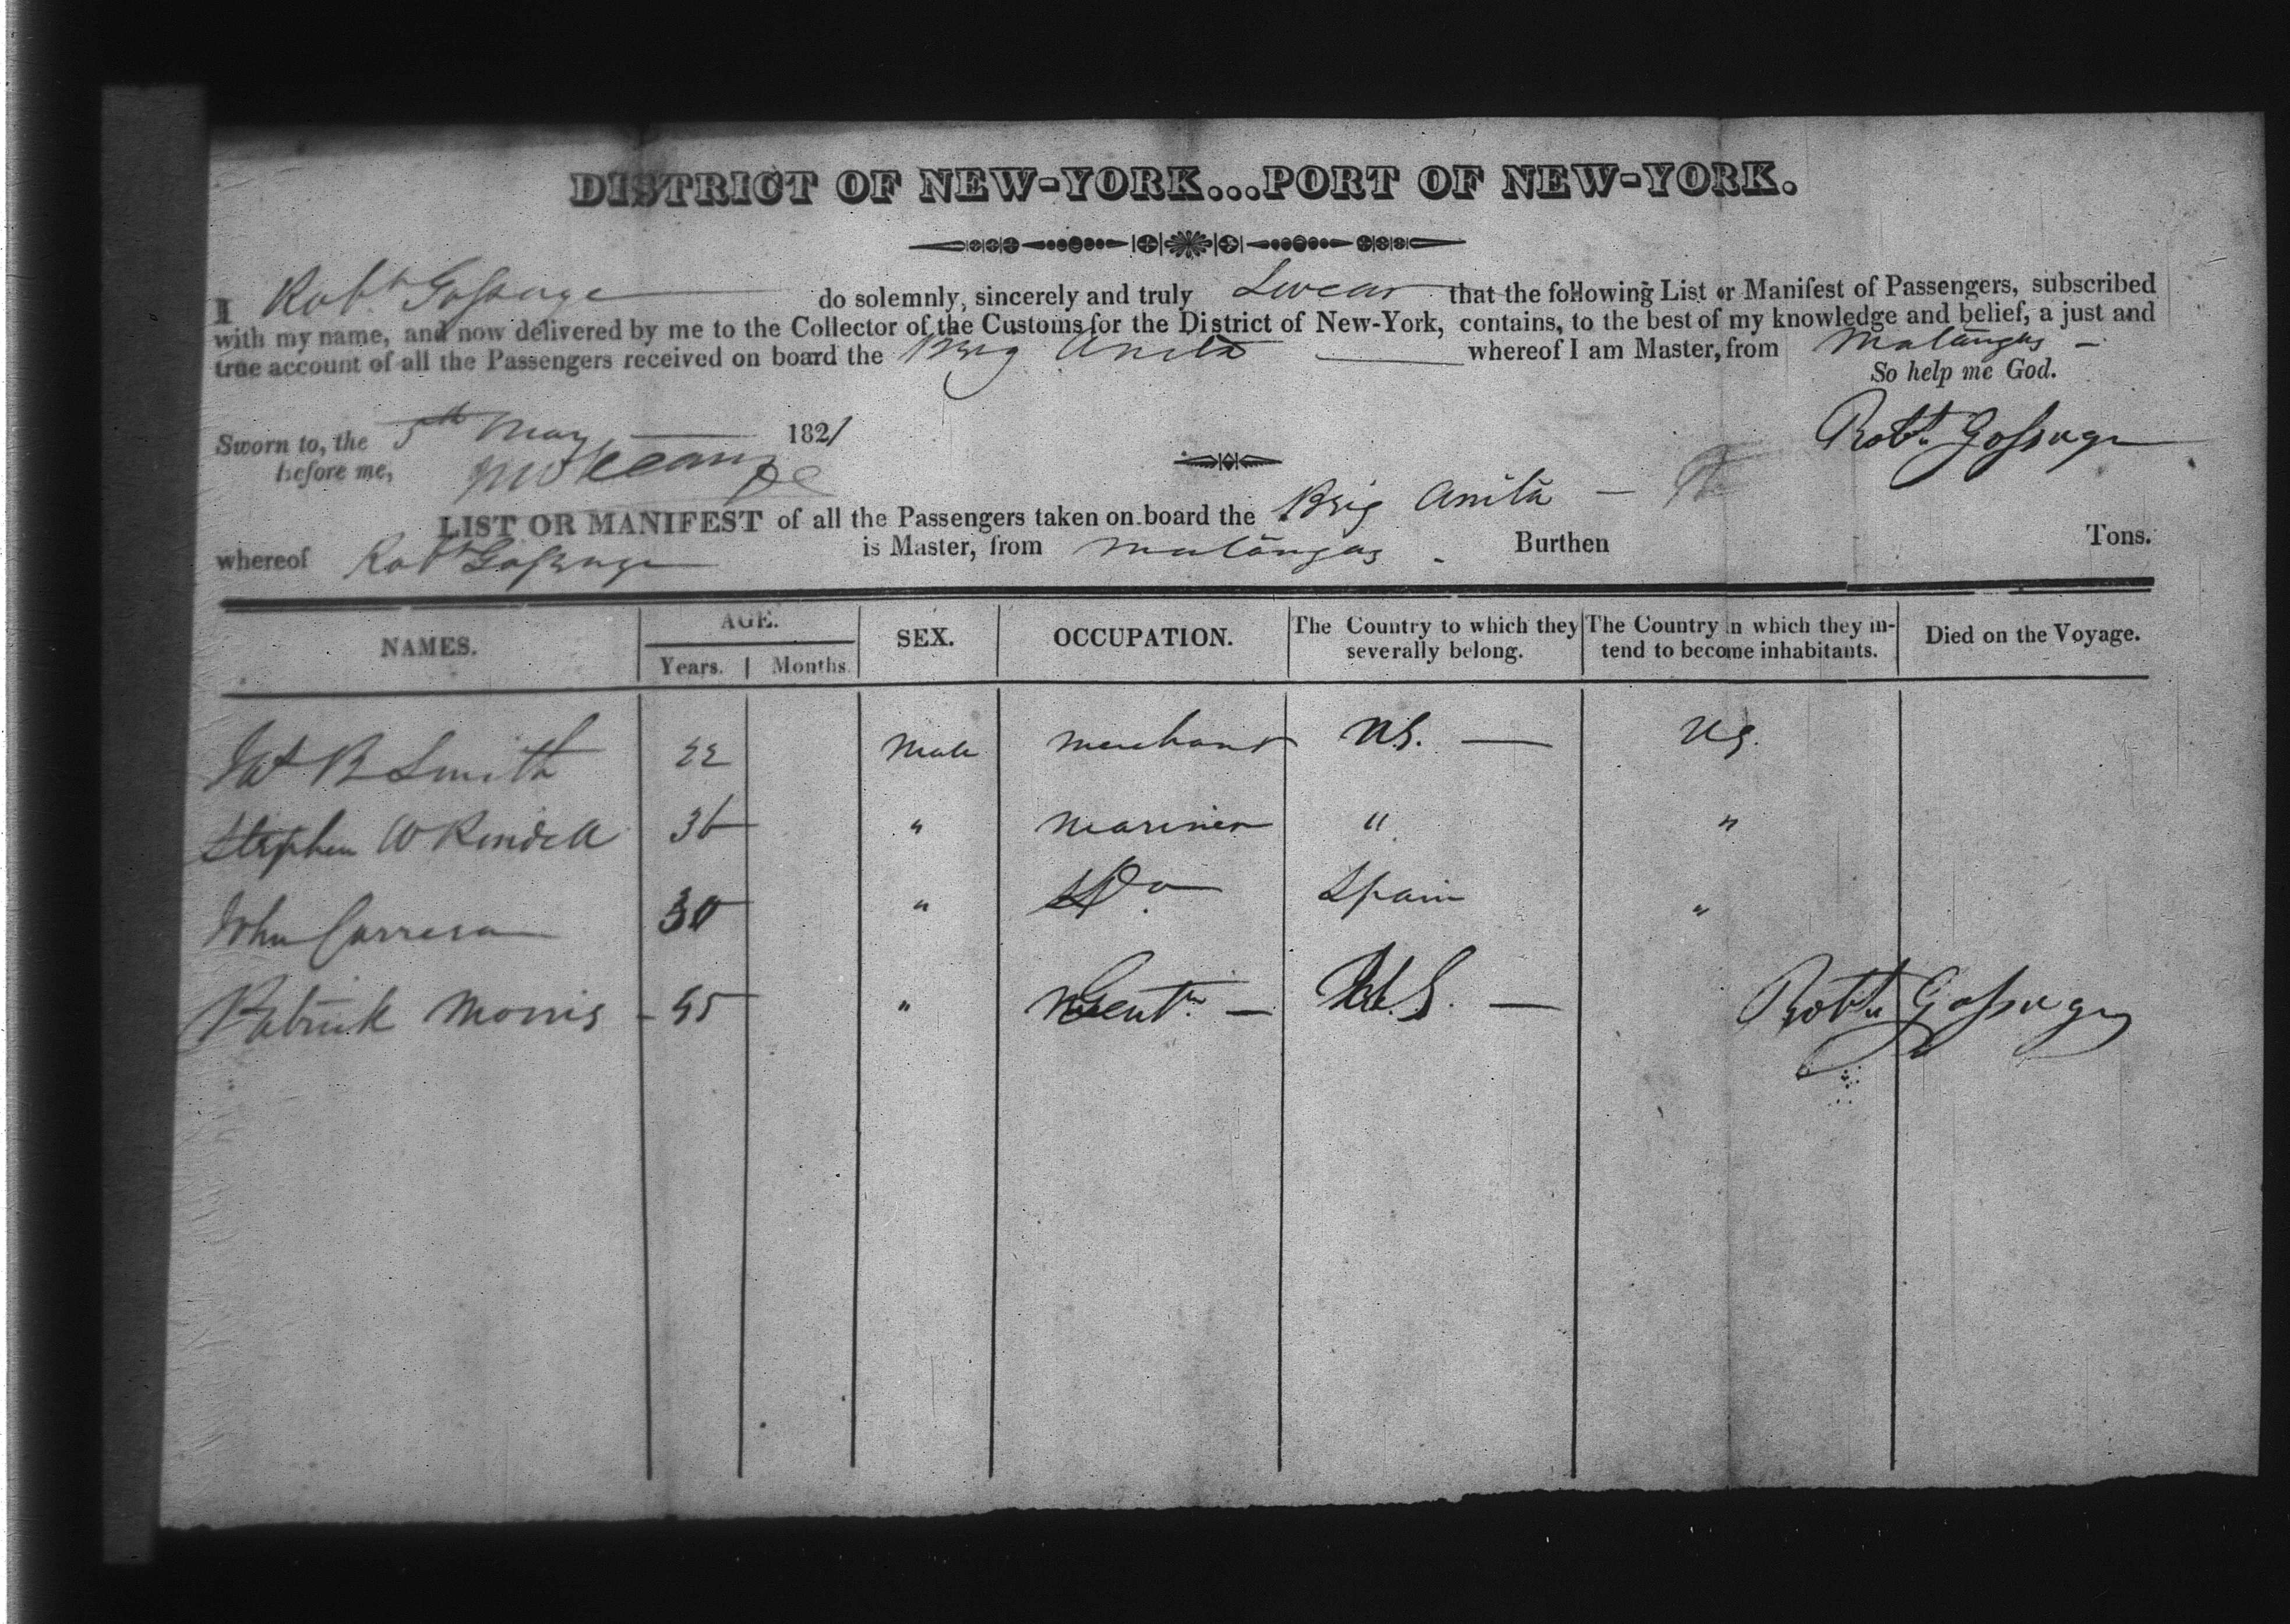 DISTRICT OF NEW-YORK...PORT OF NEW-YORK.
I Robt. Gossage do solemnly, sincerely and truly Swear that the following List or Manifest of Passengers, subscribed
with my name, and now delivered by me to the Collector of the Customs for the District of New-York, contains, to the best of my knowledge and belief, a just and
true account of all the Passengers received on board the Brig Anita whereof I am Master, from Matangas
So help me God.
Sworn to, the 5th May 1821
before me,
Robt. Gossage
LIST OR MANIFEST of all the Passengers taken on board the Brig Anita
whereof Robt Gossage is Master, from Matangas Burthen Tons.
NAMES. AGE. Years. Months. SEX. OCCUPATION. The Country to which they severally belong. The Country in which they intend to become inhabitants. Died on the Voyage.
B Smith 22 Male Merchant US. US.
Stephen W Rindell 36 " Mariner " "
John Carrera 30 " Do Spain "
Patrick Morris 45 " Gentn U.S.
Robt. Gossage